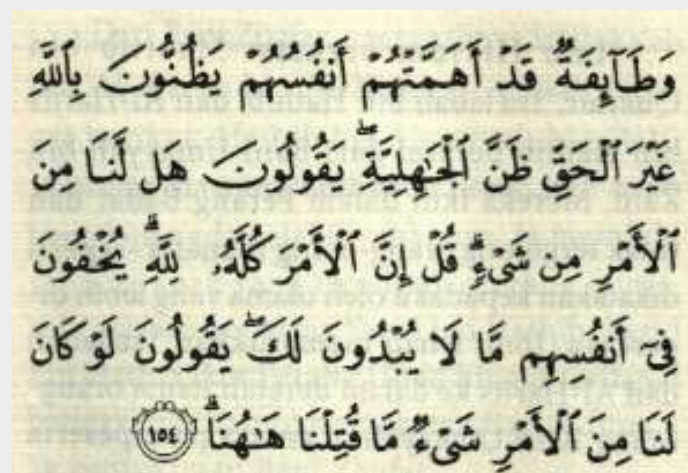 وَطَآئِفَةٌ قَدْ أَهَمَّتْهُمْ أَنفُسُهُمْ يَظُنُّونَ بِٱللَّهِ
غَيْرَ ٱلْحَقِّ ظَنَّ ٱلْجَٰهِلِيَّةِۖ يَقُولُونَ هَل لَّنَا مِنَ
ٱلْأَمْرِ مِن شَىْءٍۗ قُلْ إِنَّ ٱلْأَمْرَ كُلَّهُۥ لِلَّهِۗ يُخْفُونَ
فِىٓ أَنفُسِهِم مَّا لَا يُبْدُونَ لَكَۖ يَقُولُونَ لَوْ كَانَ
لَنَا مِنَ ٱلْأَمْرِ شَىْءٌ مَّا قُتِلْنَا هَٰهُنَاۗ ١٥٤